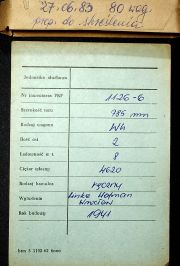 27.06.83 80 wag.
prop. do skreślenia
Jednostka służbowa
Nr inwentarza PKP 1126-6
Szerokość toru 785 mm
Rodzaj wagonu Wh
Ilość osi 2
Ładowność w t. 8
Ciężar własny 4620
Rodzaj hamulca ręczny
Wytwórnia Linke Hofman
Wrocław
Rok budowy 1941